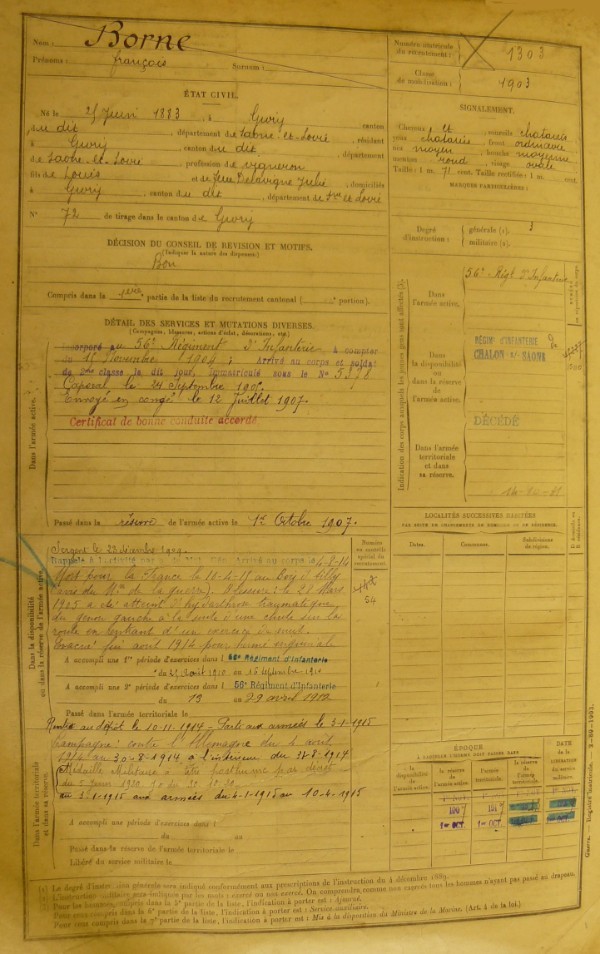 Nom : Borne
Prénoms : françois Surnom :
Numéro matricule du recrutement : 1303
Classe de mobilisation : 1903
ÉTAT CIVIL.
Né le 25 Juin 1883, à Givry canton
du dit, département de Saône-et-Loire, résidant
à Givry, canton du dit, département
de Saône-et-Loire profession de vigneron
fils de Louis et de feue Delavigne Julie, domiciliés
à Givry, canton du dit, département de Sne et Loire
N° 72 de tirage dans le canton de Givry
SIGNALEMENT.
Cheveux et sourcils chatains
yeux chatains front ordinaire
nez moyen, bouche moyenne
menton rond, visage ovale
Taille : 1 m. 71 cent. Taille rectifiée : 1 m. cent.
MARQUES PARTICULIÈRES :
Degré d'instruction : générale (1). 3
militaire (2).
DÉCISION DU CONSEIL DE RÉVISION ET MOTIFS.
(Indiquer la nature des dispenses)
Bon
Compris dans la 1ère partie de la liste du recrutement cantonal ( portion).
DÉTAIL DES SERVICES ET MUTATIONS DIVERSES.
(Campagnes, blessures, actions d'éclat, décorations, etc.)
Incorporé au 56e Régiment d'Infanterie à compter
du 15 Novembre 1904; Arrivé au corps et soldat
de 2ème classe le dit jour, immatriculé sous le N°
Caporal le 24 Septembre
Envoyé en congé le 12 Juillet 1907.
Certificat de bonne conduite accordé
Passé dans la réserve de l'armée active le 1er Octobre 1907.
Dans l'armée active.
Indication des corps auxquels les jeunes gens sont affectés
Dans l'armée active.
56e Régt d'Infanterie
Dans la disponibilité ou dans la réserve de l'armée active.
RÉGIMt D'INFANTERIE
CHALON S/ SAONE
DÉCÉDÉ
Dans l'armée territoriale et dans sa réserve.
LOCALITÉS SUCCESSIVES HABITÉES
PAR SUITE DE CHANGEMENTS DE DOMICILE OU DE RÉSIDENCE.
Dates. Communes. Subdivisions de région.
Dans la disponibilité ou dans la réserve de l'armée active.
Numéro au contrôle spécial du recrutement
Sergent le 23 décembre
Rappelé à l'activité Arrivé au corps le 4-8-14
Mort pour la France le 10-4-15 au Bois d'Ailly
(avis du Min. de la guerre). Blessure: le 21 Mars
1905 a été atteint d'hydarthrose traumatique
du genou gauche à la suite d'une chute sur la
route en rentrant d'un exercice
Evacué fin août 1914 pour
A accompli une 1re période d'exercices dans l 56e Régiment d'Infanterie
du 24 août 1910 au 15 septembre 1910
A accompli une 2e période d'exercices dans l 56e Régiment d'Infanterie
du 13 au 29 avril 1912
Passé dans l'armée territoriale le
Dans l'armée territoriale et dans sa réserve.
Rentré au dépôt le 10-11-1914 - Parti aux armées le 3-1-1915
Campagne: contre l'Allemagne du 4 août
1914 au 30-8-1914 à l'intérieur du 31-8-1914
Médaille Militaire à titre posthume par décret
au 3-1-1915 aux armées du 4-1-1915 au 10-4-1915
A accompli une période d'exercices dans l
du au
Passé dans la réserve de l'armée territoriale le
Libéré du service militaire le
ÉPOQUE
À LAQUELLE L'HOMME DOIT PASSER DANS
la disponibilité de l'armée active. la réserve de l'armée active. l'armée territoriale. la réserve de l'armée territoriale.
DATE de la LIBÉRATION du service militaire.
1907 1917
1er OCT. 1er OCT.
(1) Le degré d'instruction générale sera indiqué conformément aux prescriptions de l'instruction du 4 décembre 1889.
Pour les hommes, compris dans la 5e partie de la liste, l'indication à porter est : Ajourné.
Pour ceux compris dans la 6e partie de la liste, l'indication à porter est : Service auxiliaire.
Pour ceux compris dans la 7e partie de la liste, l'indication à porter est : Mis à la disposition du Ministre de la Marine. (Art. 4 de la loi.)